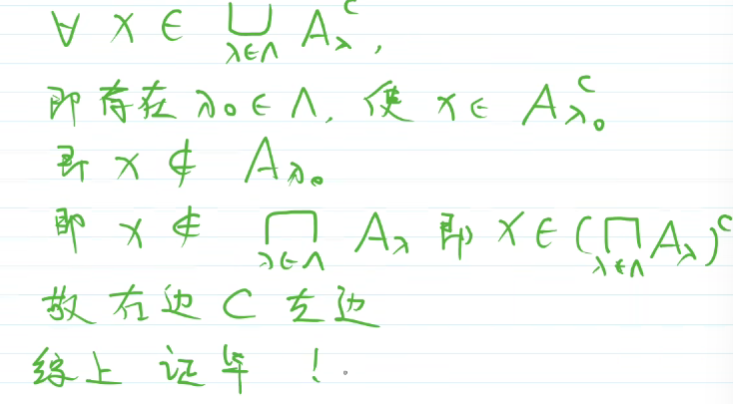 ∀ x ∈ ⋃_{λ∈Λ} A_λ^c ,
即存在 λ₀ ∈ Λ, 使 x ∈ A_{λ₀}^c
即 x ∉ A_{λ₀}
即 x ∉ ⋂_{λ∈Λ} A_λ 即 x ∈ (⋂_{λ∈Λ} A_λ)^c
故右边 ⊂ 左边
综上 证毕 !.